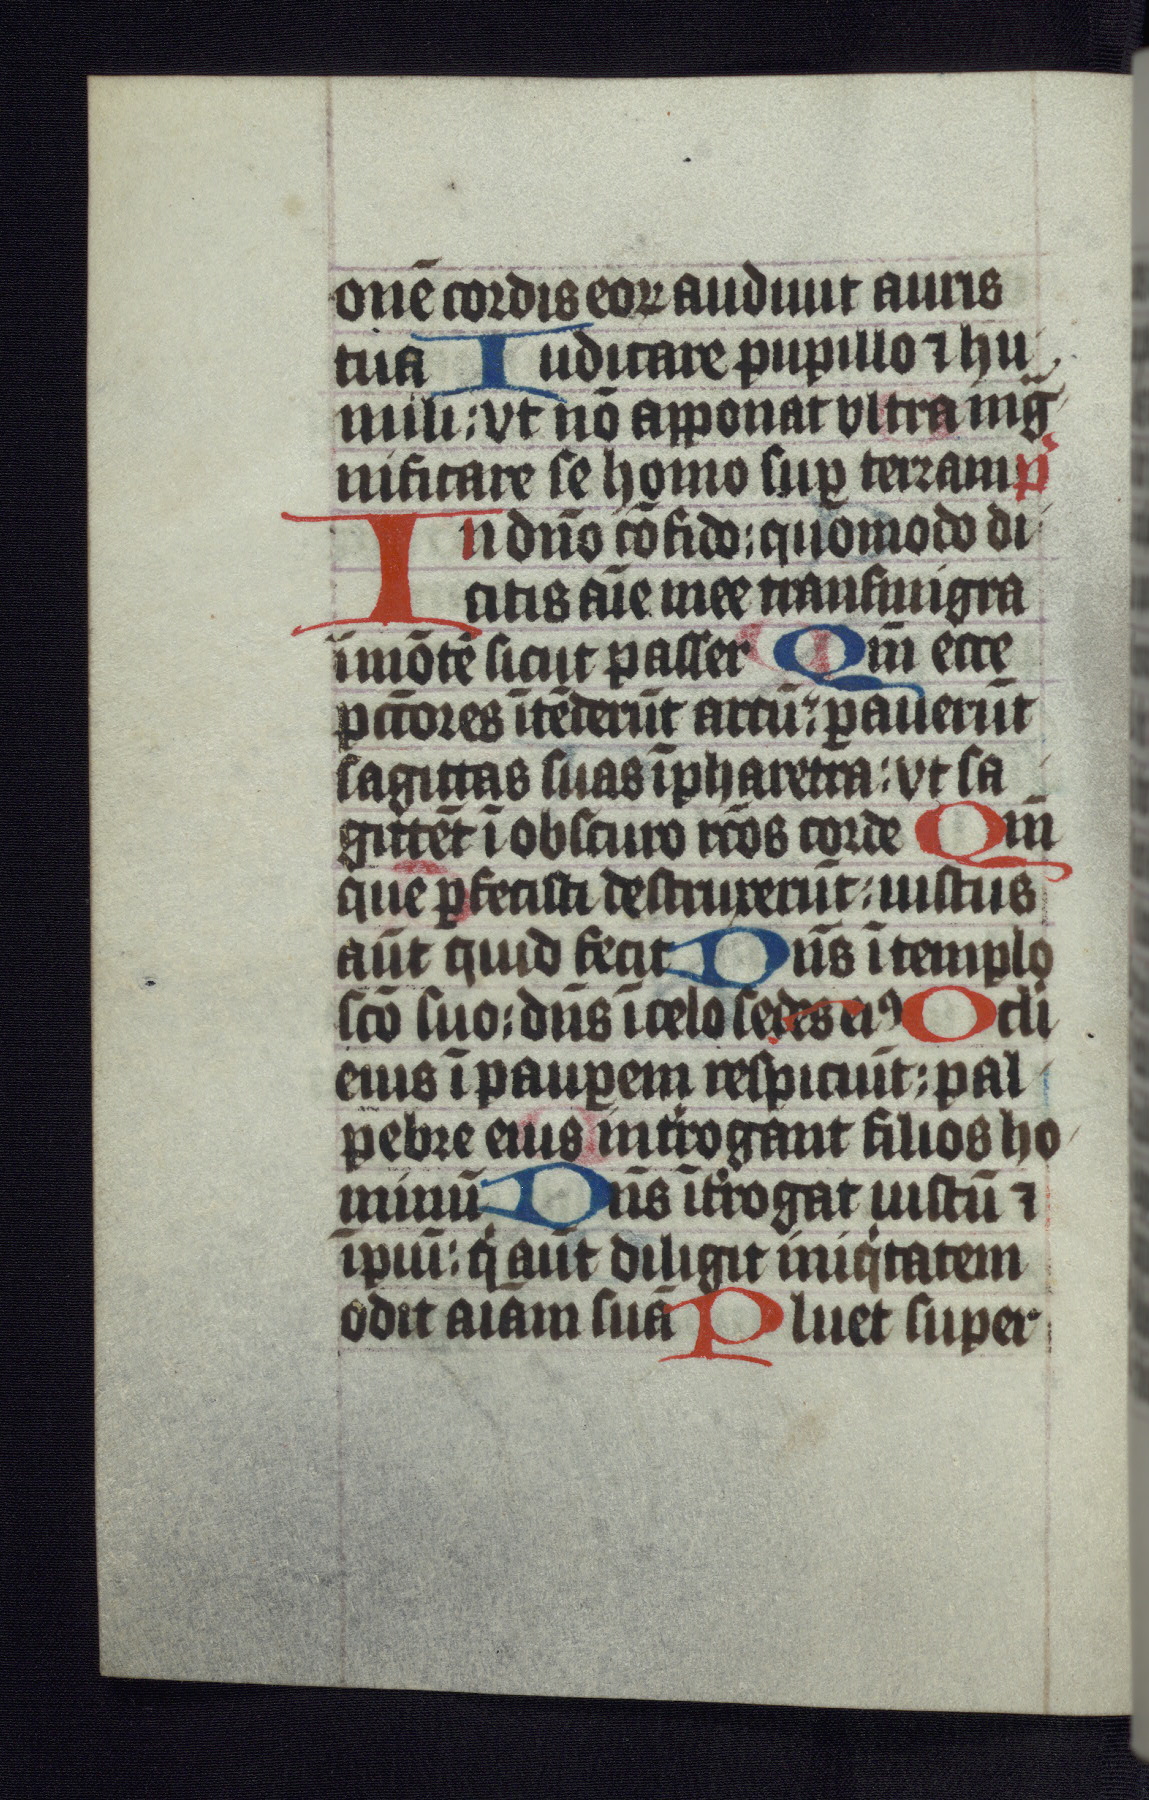 onē cordis eoꝝ audiuit auris
tua Iudicare pupillo ⁊ hu
mili: vt nō apponat vltra mg̅
nificare se homo suꝑ terram p̄
In dn̄o cōfido: quōmodo di
citis aīe mee transmigra
ī mōtē sicut passer Qm̄ ecce
pctōres ītēderūt arcū: ꝑauerūt
sagittas suas ī pharetra: vt sa
gittēt ī obscuro rc̄os corde Qm̄
que ꝑfecisti destruxerūt: iustus
aūt quid fecit Dn̄s ī templo
scō suo: dn̄s ī celo sedes eiꝰ Ocli
eius ī pauꝑem respiciūt: pal
pebre eius int͛rogant filios ho
minū Dn̄s īt͛rogat iustū ⁊
īpiū: qͥ aūt diligit iniqͥtatem
odit aīam suā Pluet super